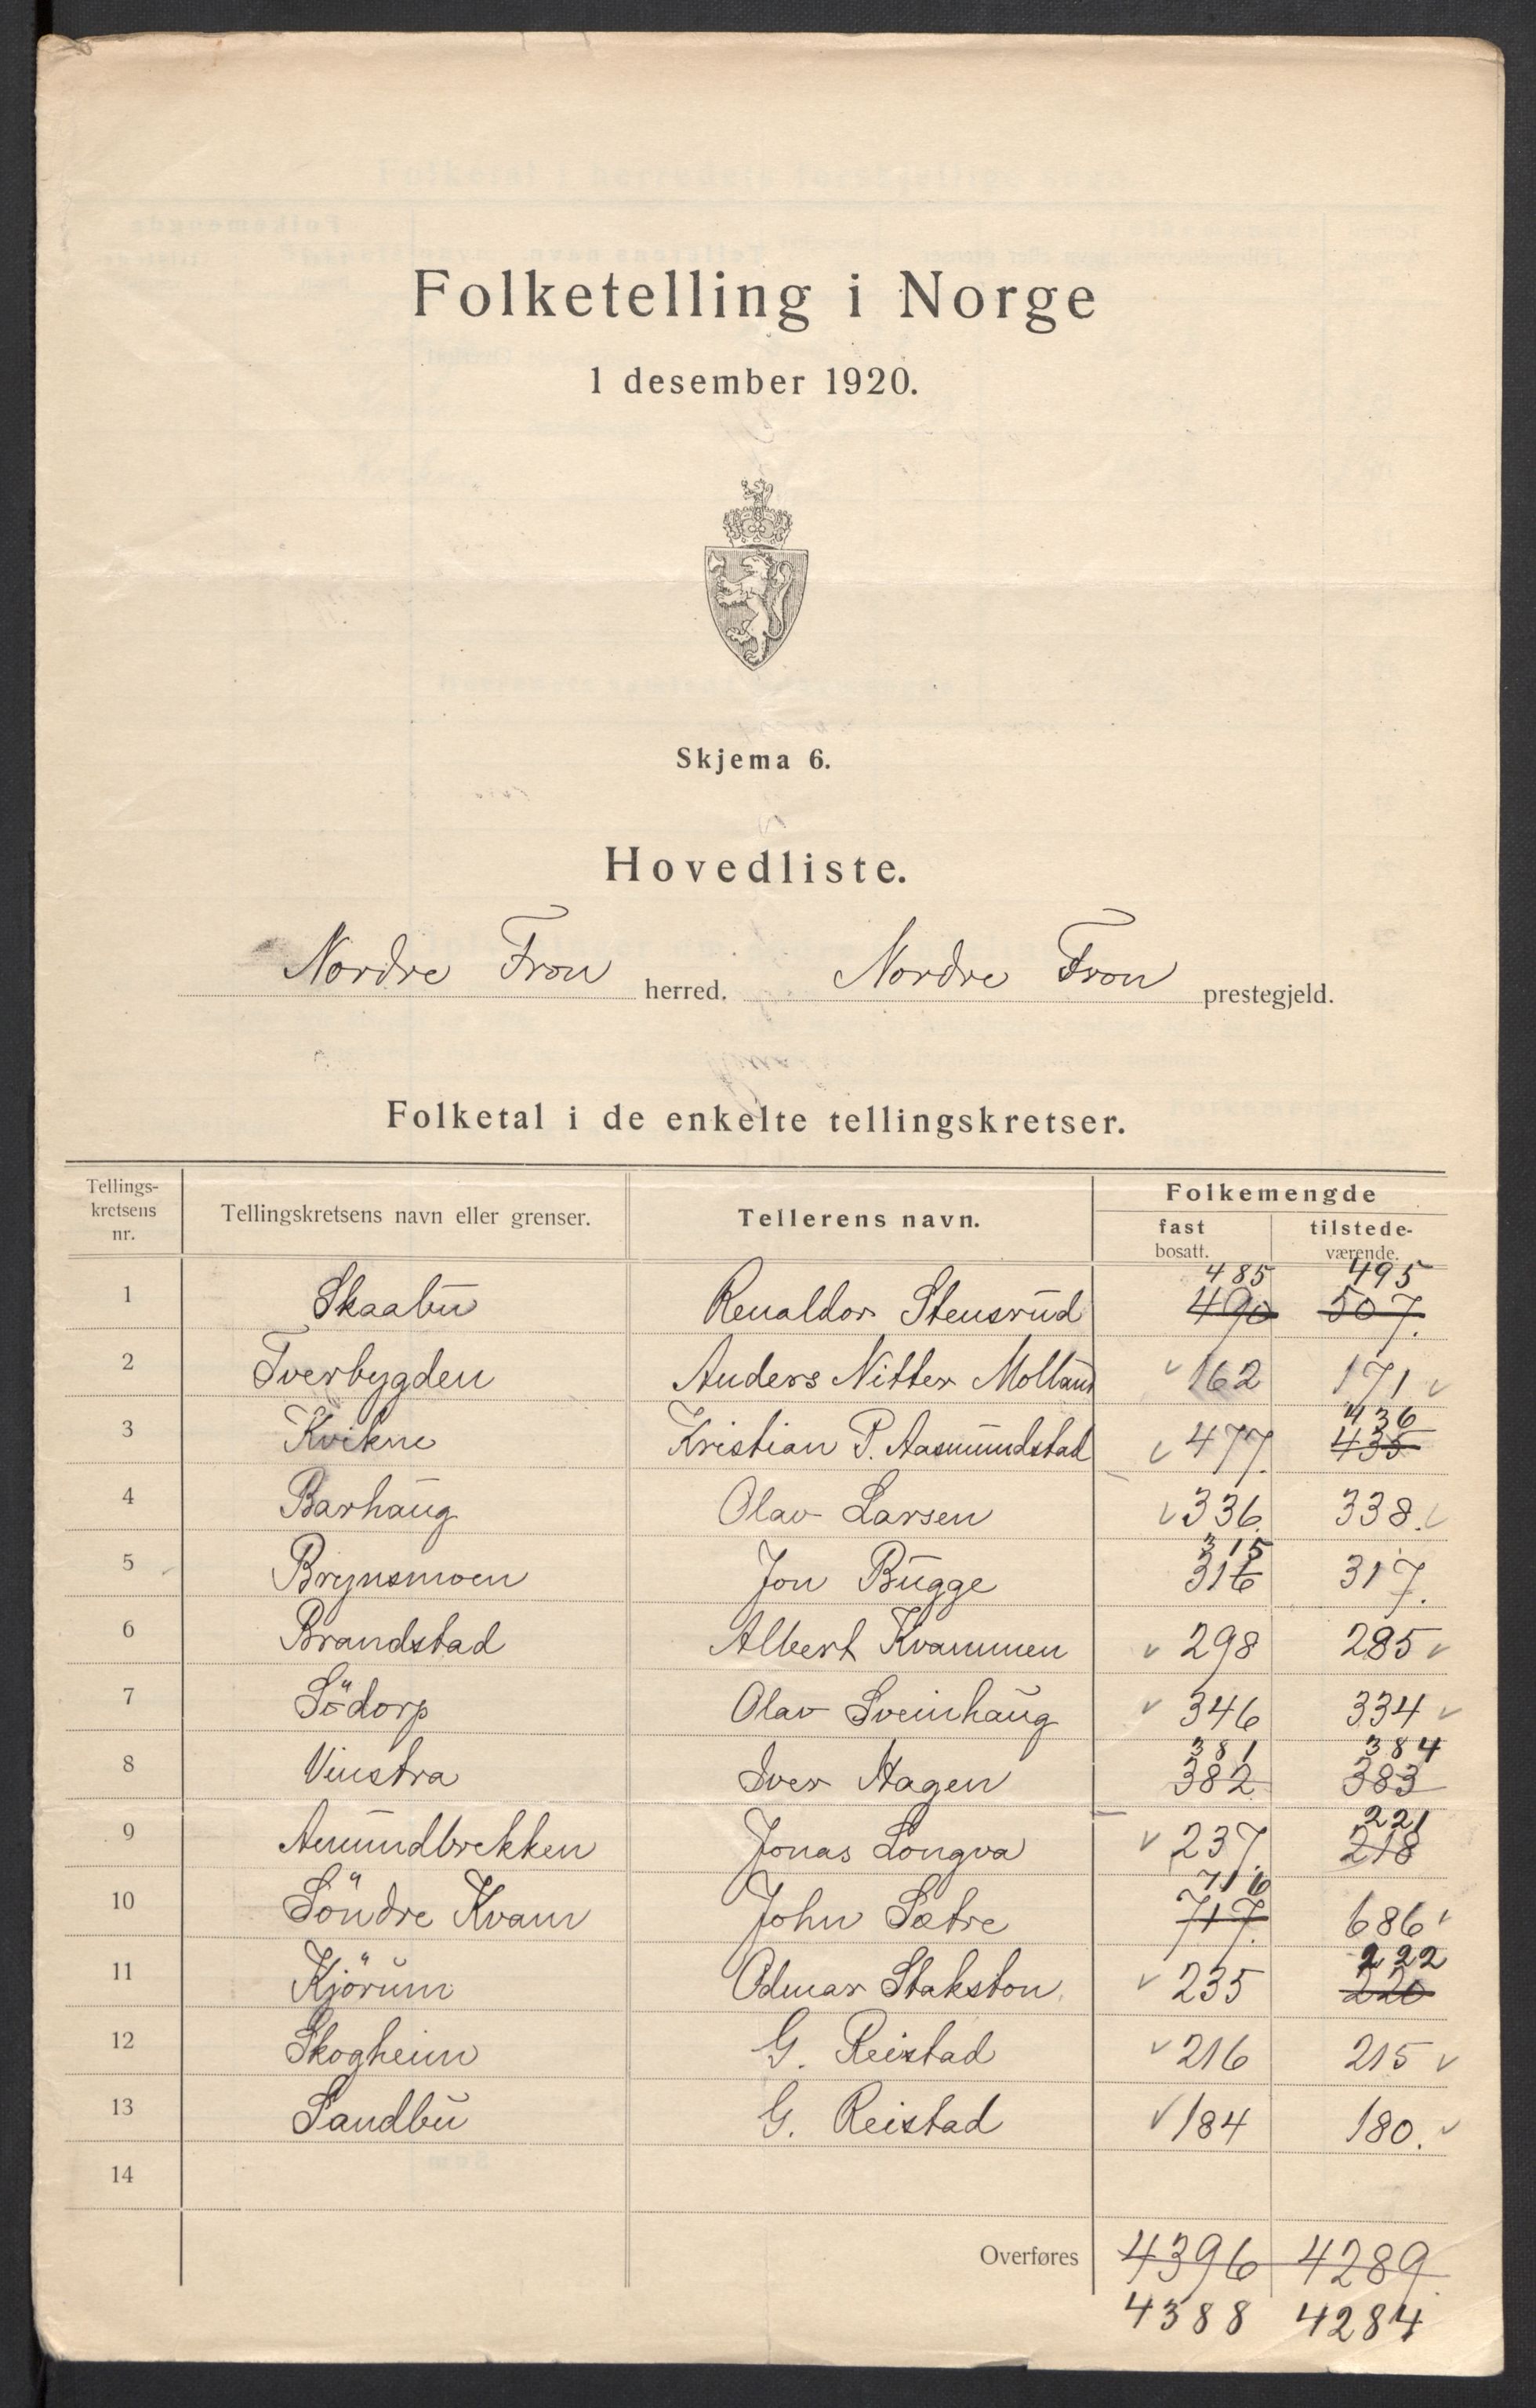 Folketelling i Norge
1 desember 1920.
Skjema 6.
Hovedliste.
Nordre Fron herred. Nordre Fron prestegjeld.
Folketal i de enkelte tellingskretser.
Tellings-kretsens nr. Tellingskretsens navn eller grenser. Tellerens navn. Folkemengde
fast bosatt. tilstede-værende.
485 495
1 Skaabu Renaldor Stensrud 490 507.
2 Tverbygden Anders Nitter Molland 162 171
436
3 Kvikne Kristian P. Aasmundstad 477. 435
4 Barhaug Olav Larsen 336. 338.
315
5 Brynsmoen Jon Bugge 316 317.
6 Brandstad Albert Kvammen 298 285
7 Södorp Olav Sveinhaug 346 334
381 384
8 Vinstra Iver Hagen 382 383
221
9 Amundbrekken Jonas Longva 237. 218
716
10 Söndre Kvam John Sætre 717. 686
222
11 Kjörum Odmar Stakston 235 220
12 Skogheim G. Reistad 216 215
13 Sandbu G. Reistad 184 180.
14
Overføres 4396 4289.
4388 4284